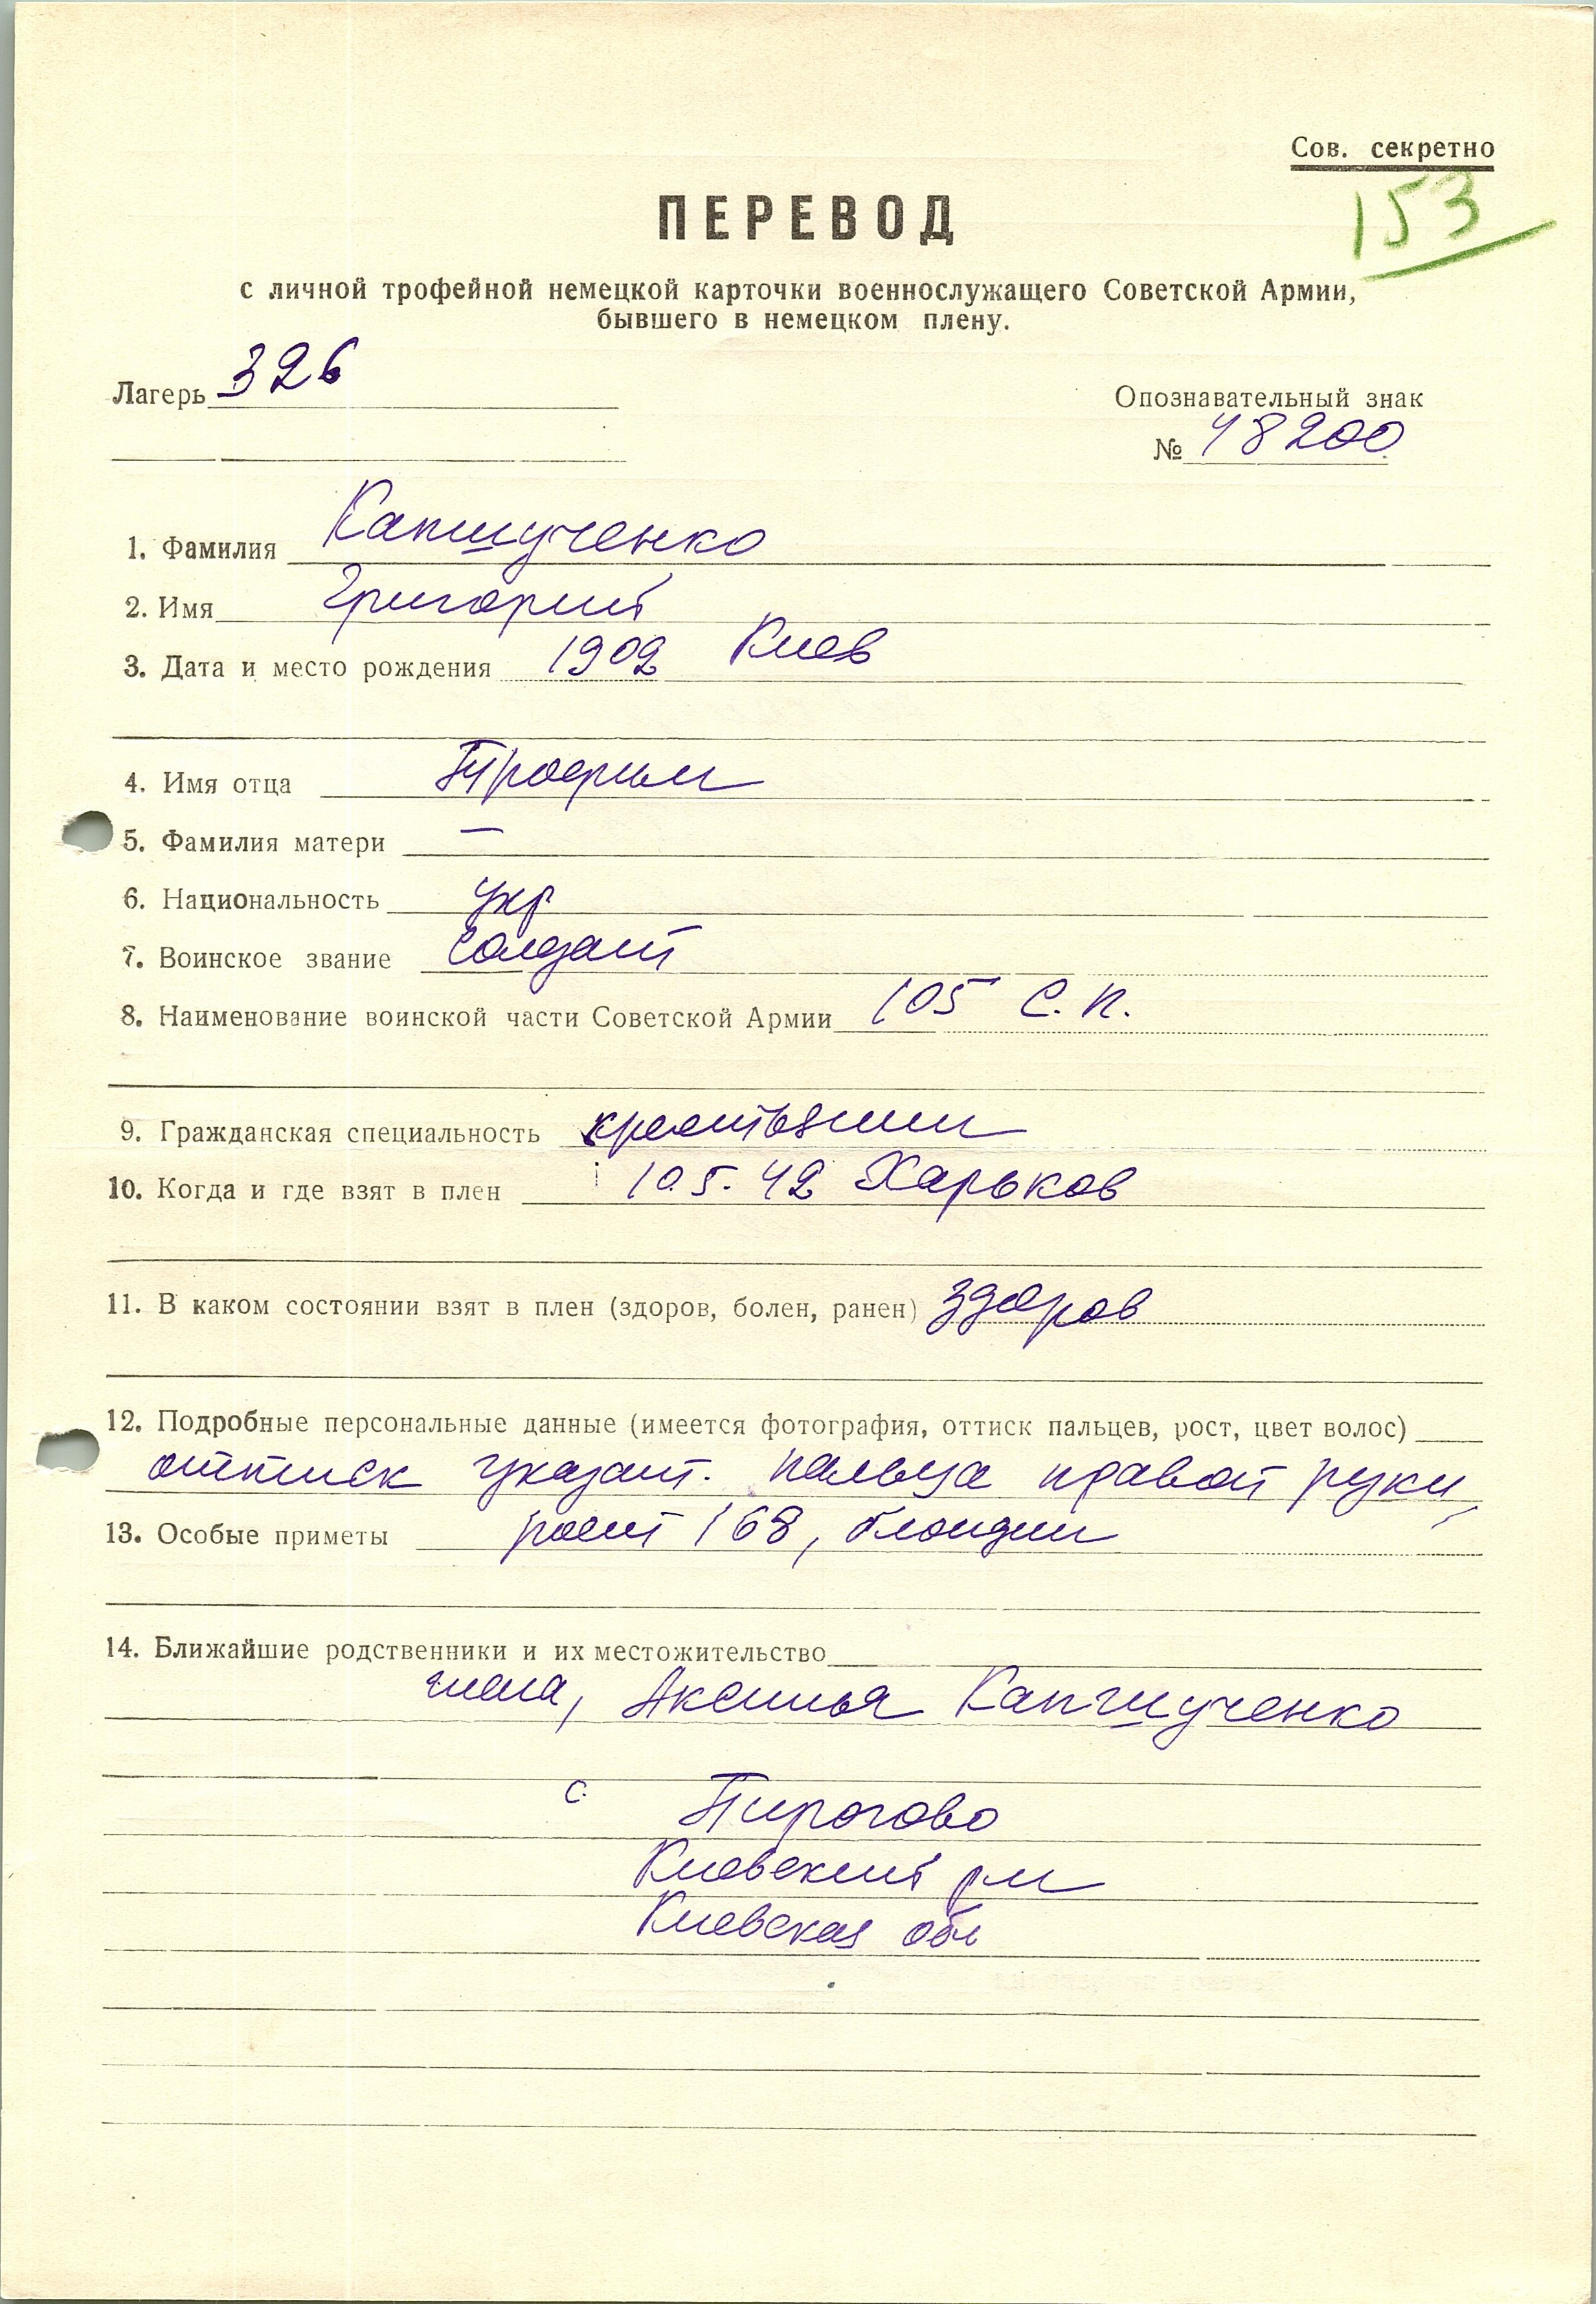 Сов. секретно
153
ПЕРЕВОД
с личной трофейной немецкой карточки военнослужащего Советской Армии,
бывшего в немецком плену.
Лагерь 326
Опознавательный знак
№ 48200
1. Фамилия Капшученко
2. Имя Григорий
3. Дата и место рождения 1902 Киев
4. Имя отца Трофим
5. Фамилия матери —
6. Национальность укр.
7. Воинское звание солдат
8. Наименование воинской части Советской Армии 105 С.П.
9. Гражданская специальность крестьянин
10. Когда и где взят в плен 10.5.42 Харьков
11. В каком состоянии взят в плен (здоров, болен, ранен) здоров
12. Подробные персональные данные (имеется фотография, оттиск пальцев, рост, цвет волос)
оттиск указат. пальца правой руки,
13. Особые приметы рост 168, блондин
14. Ближайшие родственники и их местожительство
жена, Аксинья Капшученко
с. Пирогово
Киевский р-н
Киевская обл